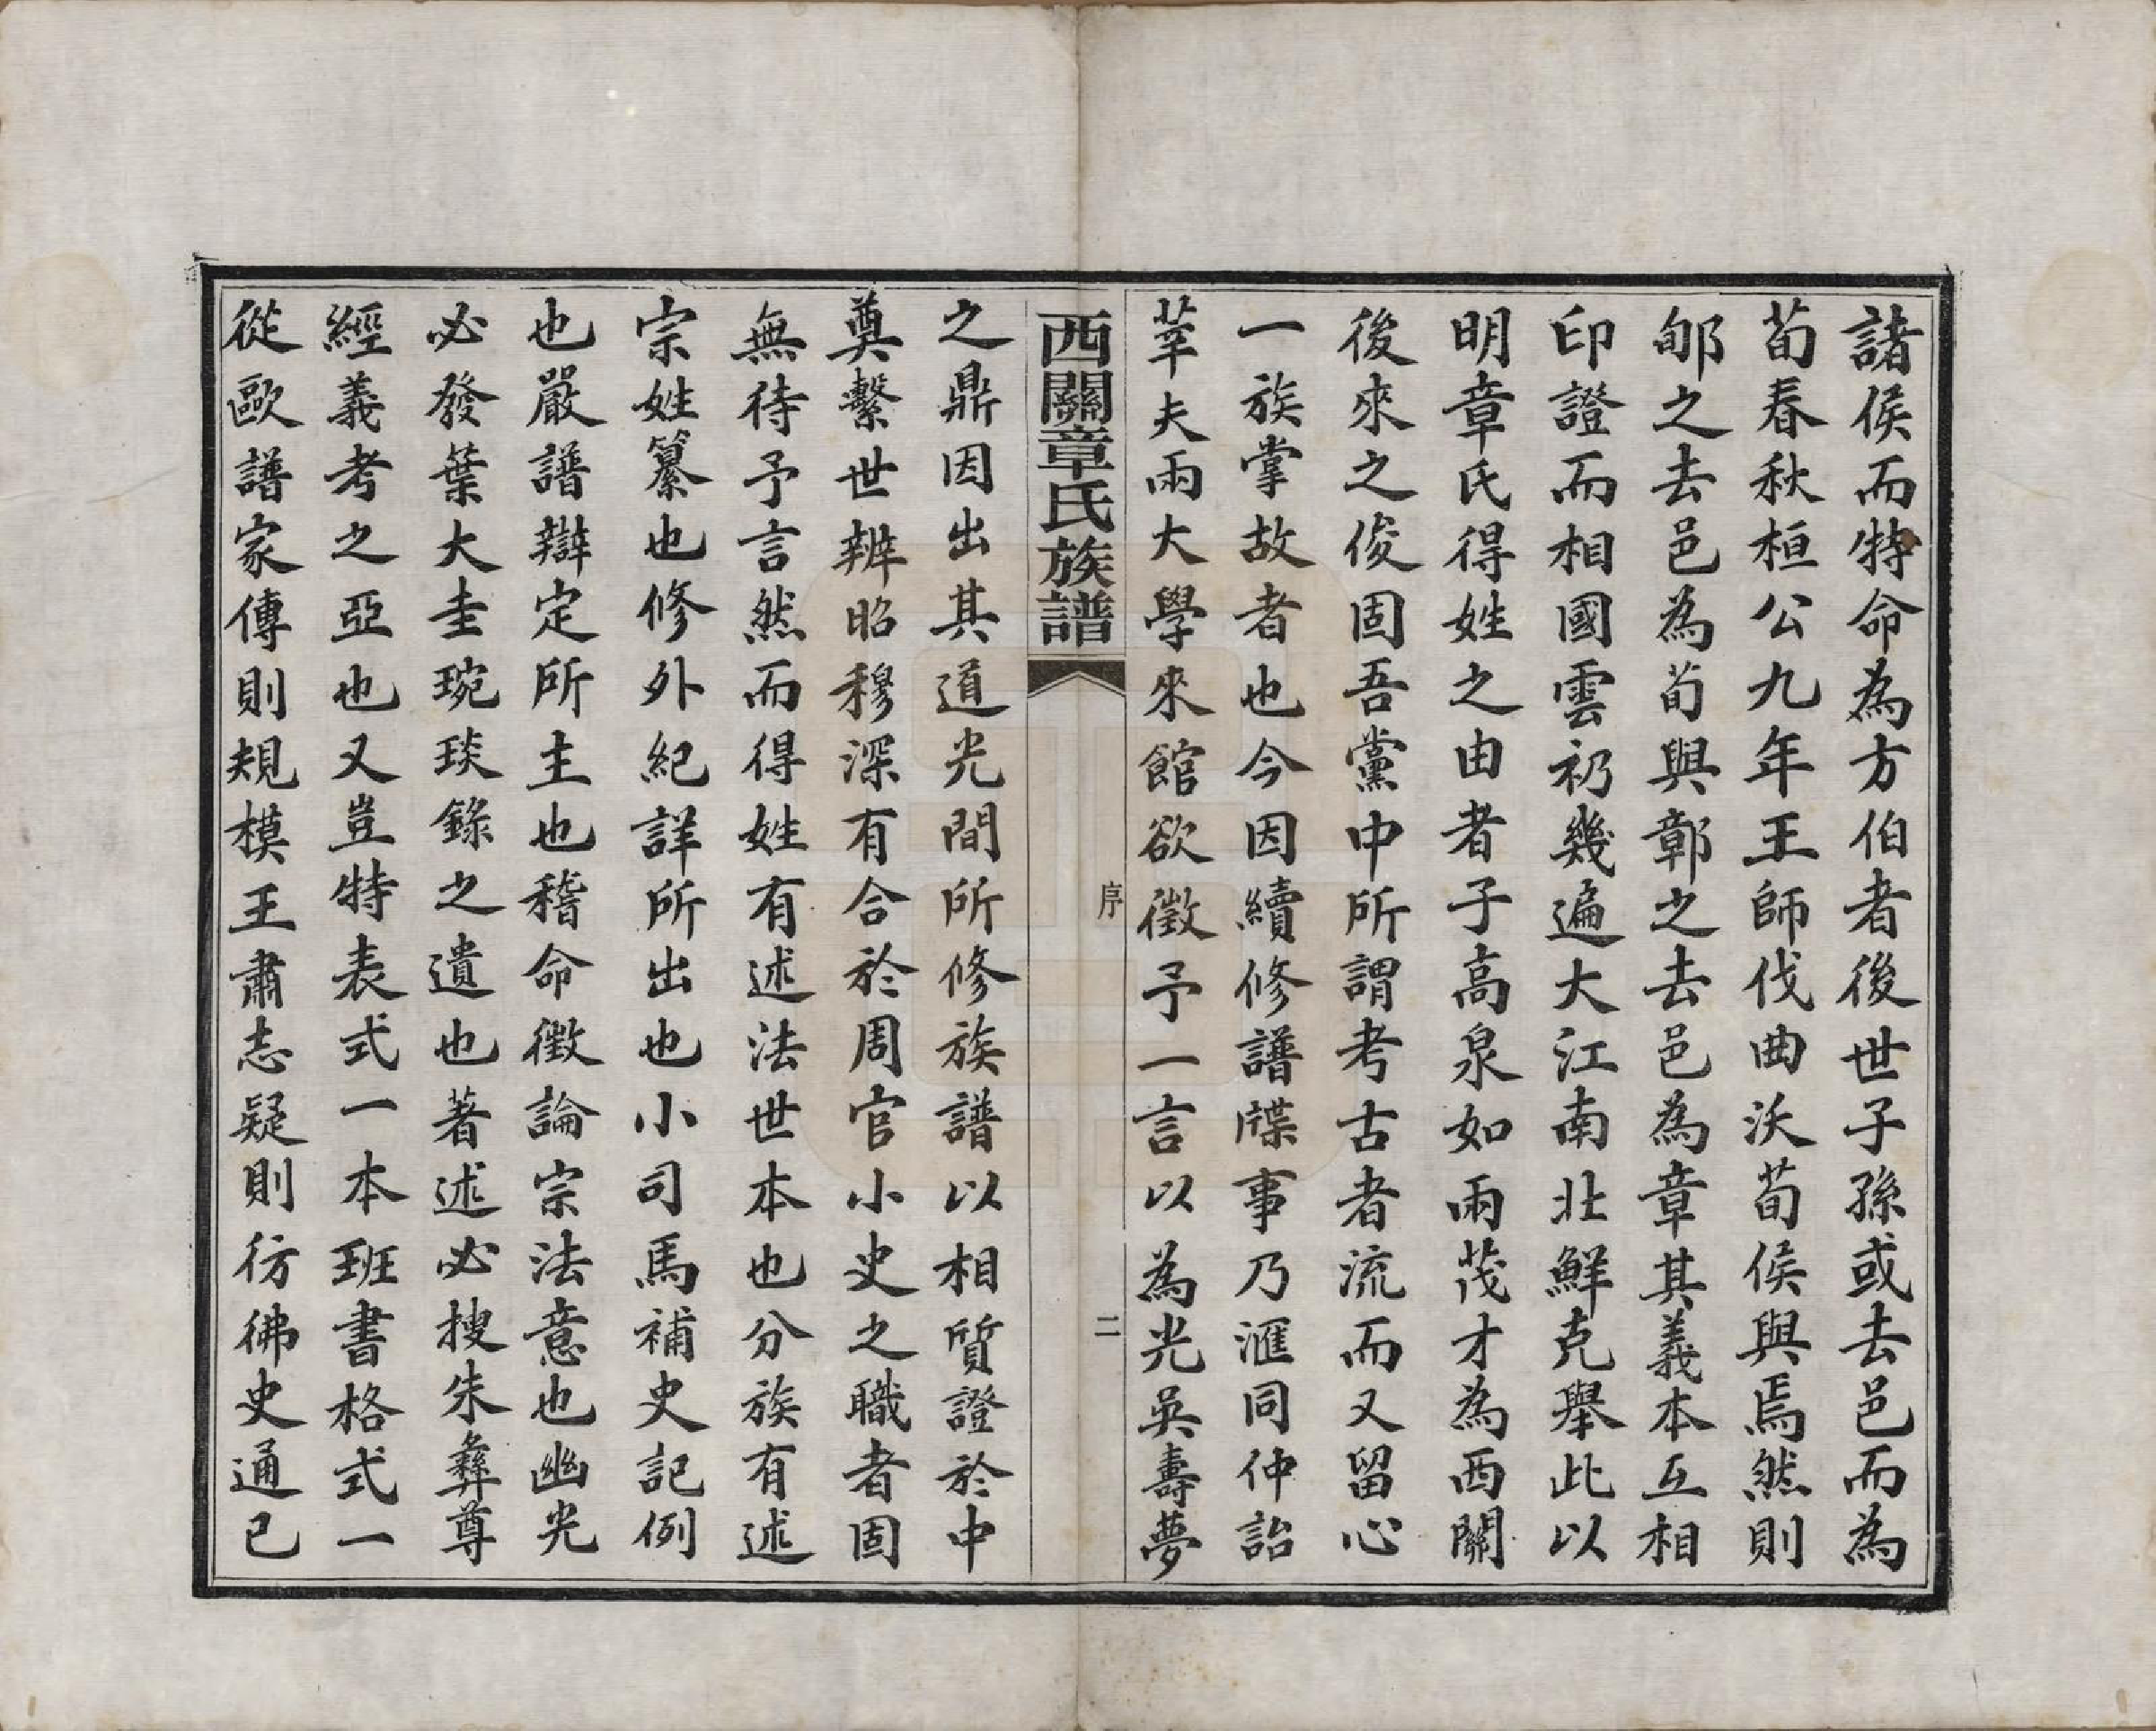 諸侯而特命為方伯者後世子孫或去邑而為
荀春秋桓公九年王師伐曲沃荀侯與焉然則
郇之去邑為荀與鄣之去邑為章其義本互相
印證而相國雲礽幾遍大江南北鮮克舉此以
明章氏得姓之由者子高泉如雨茂才為西關
後來之俊固吾黨中所謂考古者流而又留心
一族掌故者也今因續修譜牒事乃滙同仲詒
莘夫雨大學來館欲徵予一言以為光吳壽夢
西關章氏族譜
序
二
之鼎因出其道光間所修族譜以相質證於中
奠繫世辨昭穆深有合於周官小史之職者固
無待予言然而得姓有述法世本也分族有述
宗姓纂也修外紀詳所出也小司馬補史記例
也嚴譜辯定所主也稽命徵論宗法意也幽光
必發葉大圭琬琰錄之遺也著述必搜朱彝尊
經義考之亞也又豈特表式一本班書格式一
從歐譜家傳則規模王肅志疑則彷彿史通已